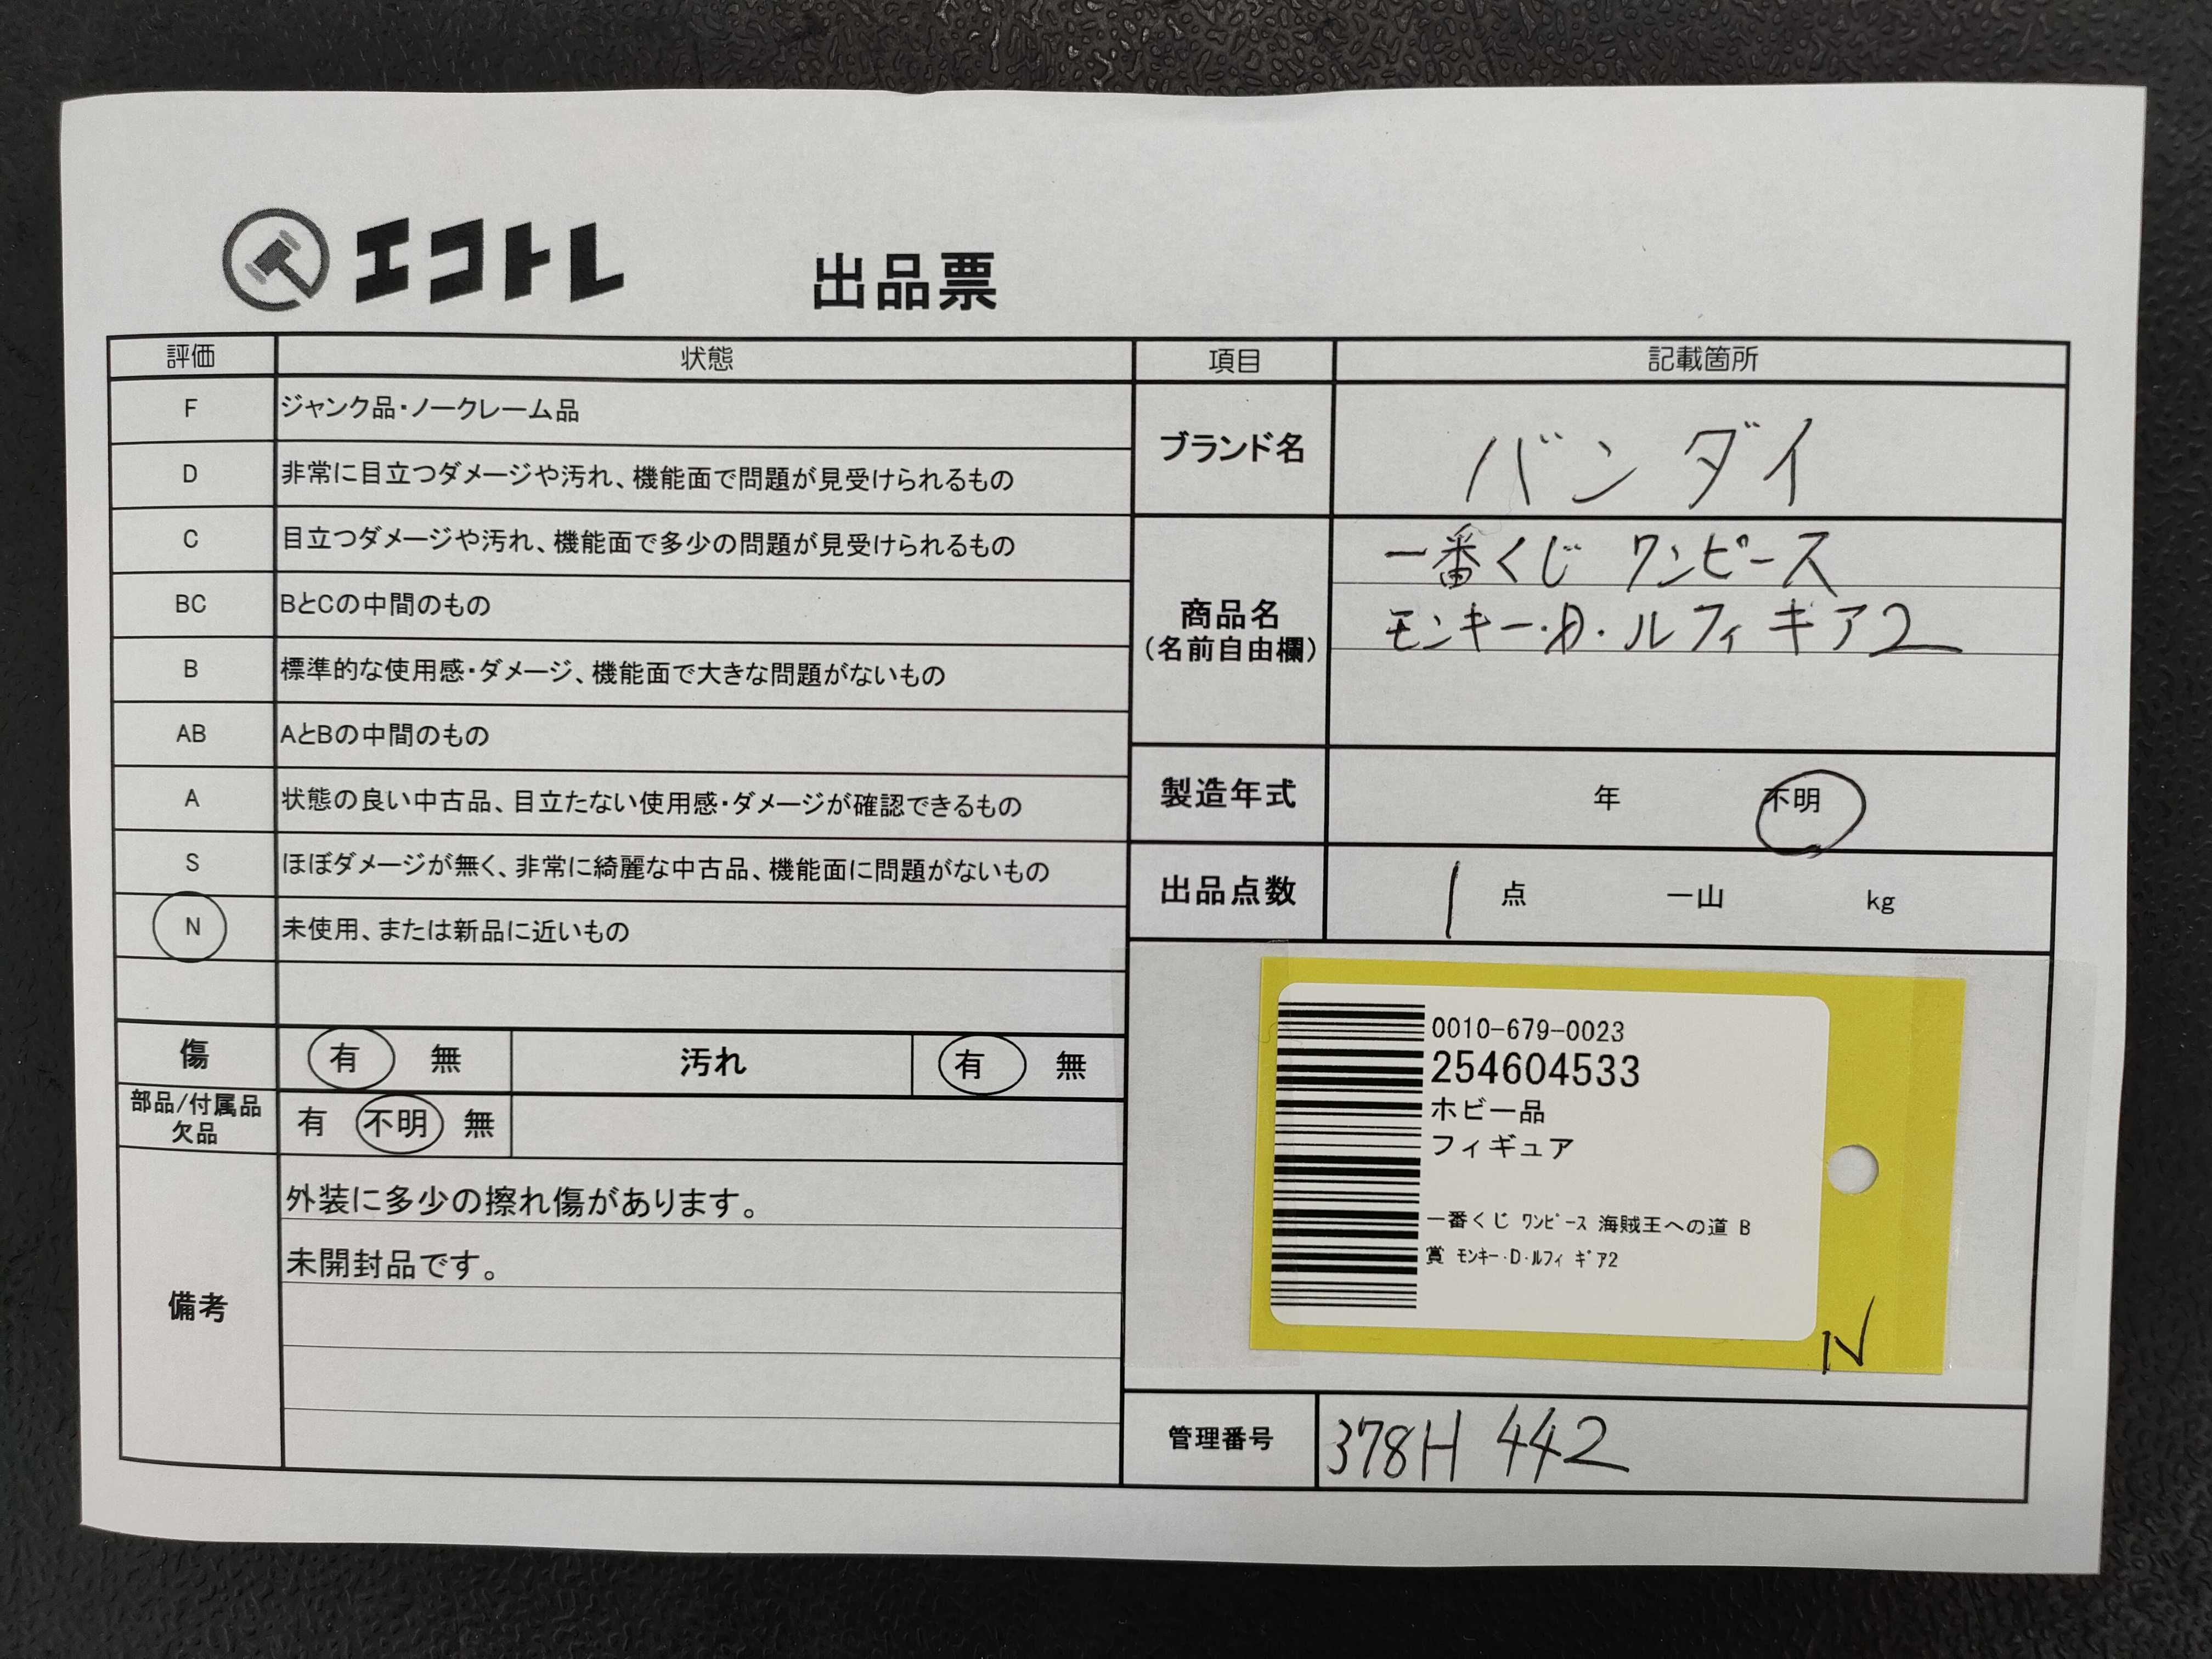 エコトレ
出品票
評価 状態
F ジャンク品・ノークレーム品
D 非常に目立つダメージや汚れ、機能面で問題が見受けられるもの
C 目立つダメージや汚れ、機能面で多少の問題が見受けられるもの
BC BとCの中間のもの
B 標準的な使用感・ダメージ、機能面で大きな問題がないもの
AB AとBの中間のもの
A 状態の良い中古品、目立たない使用感・ダメージが確認できるもの
S ほぼダメージが無く、非常に綺麗な中古品、機能面に問題がないもの
N 未使用、または新品に近いもの
傷 有 無 汚れ 有 無
部品/付属品
欠品
有 不明 無
備考
外装に多少の擦れ傷があります。
未開封品です。
項目 記載箇所
ブランド名 バンダイ
商品名
(名前自由欄)
一番くじ ワンピース
モンキー・D・ルフィ ギア2
製造年式 年 不明
出品点数 1 点 一山 kg
0010-679-0023
254604533
ホビー品
フィギュア
一番くじ ﾜﾝﾋﾟｰｽ 海賊王への道 B
賞 ﾓﾝｷｰ･D･ﾙﾌｨ ｷﾞｱ2
N
管理番号 378H 442